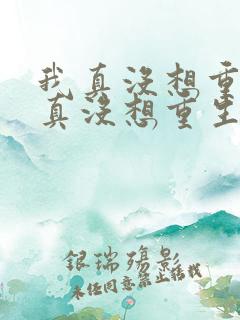 我真没想重
真没想重生
银瑞殇影
未经同意禁止转载